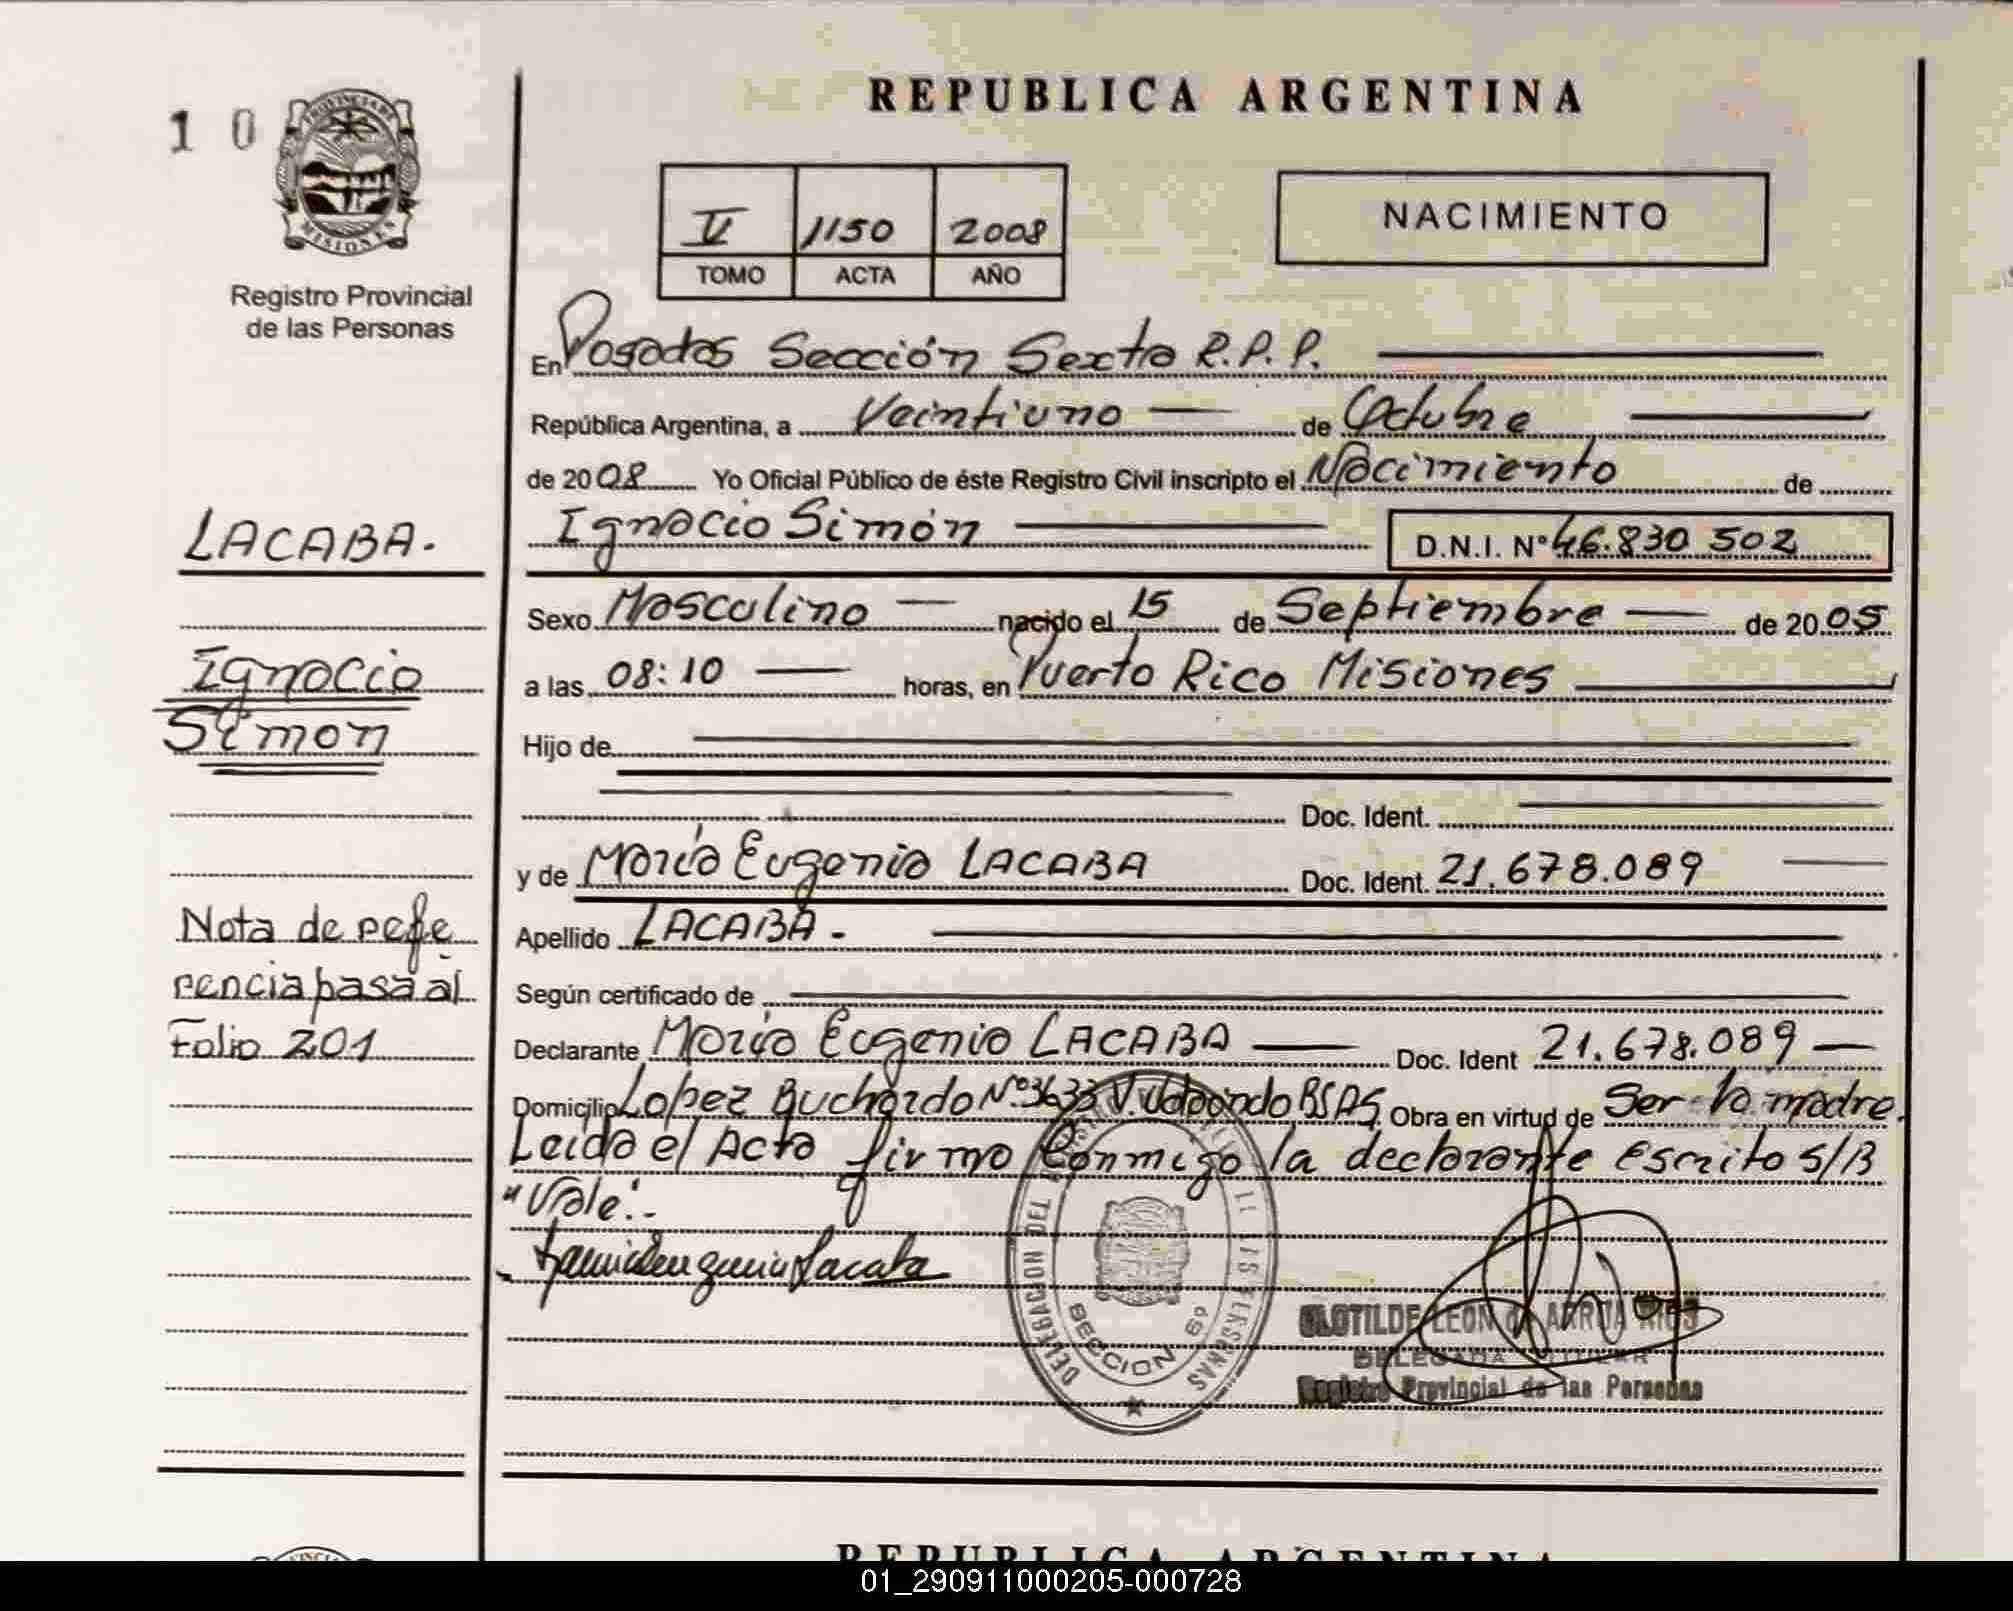 REPUBLICA ARGENTINA
1 0
PROVINCIA DE
MISIONES
Registro Provincial
de las Personas
V 1150 2008
TOMO ACTA AÑO
NACIMIENTO
En Posadas Sección Sexta R.P.P.
República Argentina, a Veintiuno de Octubre
de 2008 Yo Oficial Público de éste Registro Civil inscripto el Nacimiento de
Ignacio Simón D.N.I. N° 46.830 502
LACABA.
Ignacio
Simon
Sexo Masculino nacido el 15 de Septiembre de 2005
a las 08:10 horas, en Puerto Rico Misiones
Hijo de
Doc. Ident.
y de María Eugenia LACABA Doc. Ident. 21.678.089
Apellido LACABA.
Según certificado de
Declarante María Eugenia LACABA Doc. Ident 21.678.089
Domicilio Lopez Buchardo Nº 3633 BS AS Obra en virtud de Ser la madre.
Leída el Acta firma Conmigo la declarante Escrito S/B
"Vale".-
Nota de refe
rencia pasa al
Folio 201
DELEGACION DEL LAS PERSONAS
SECCION 6º
CLOTILDE LEON de ARRUA RIOS
DELEGADA TITULAR
Registro Provincial de las Personas
REPUBLICA ARGENTINA
01_290911000205-000728